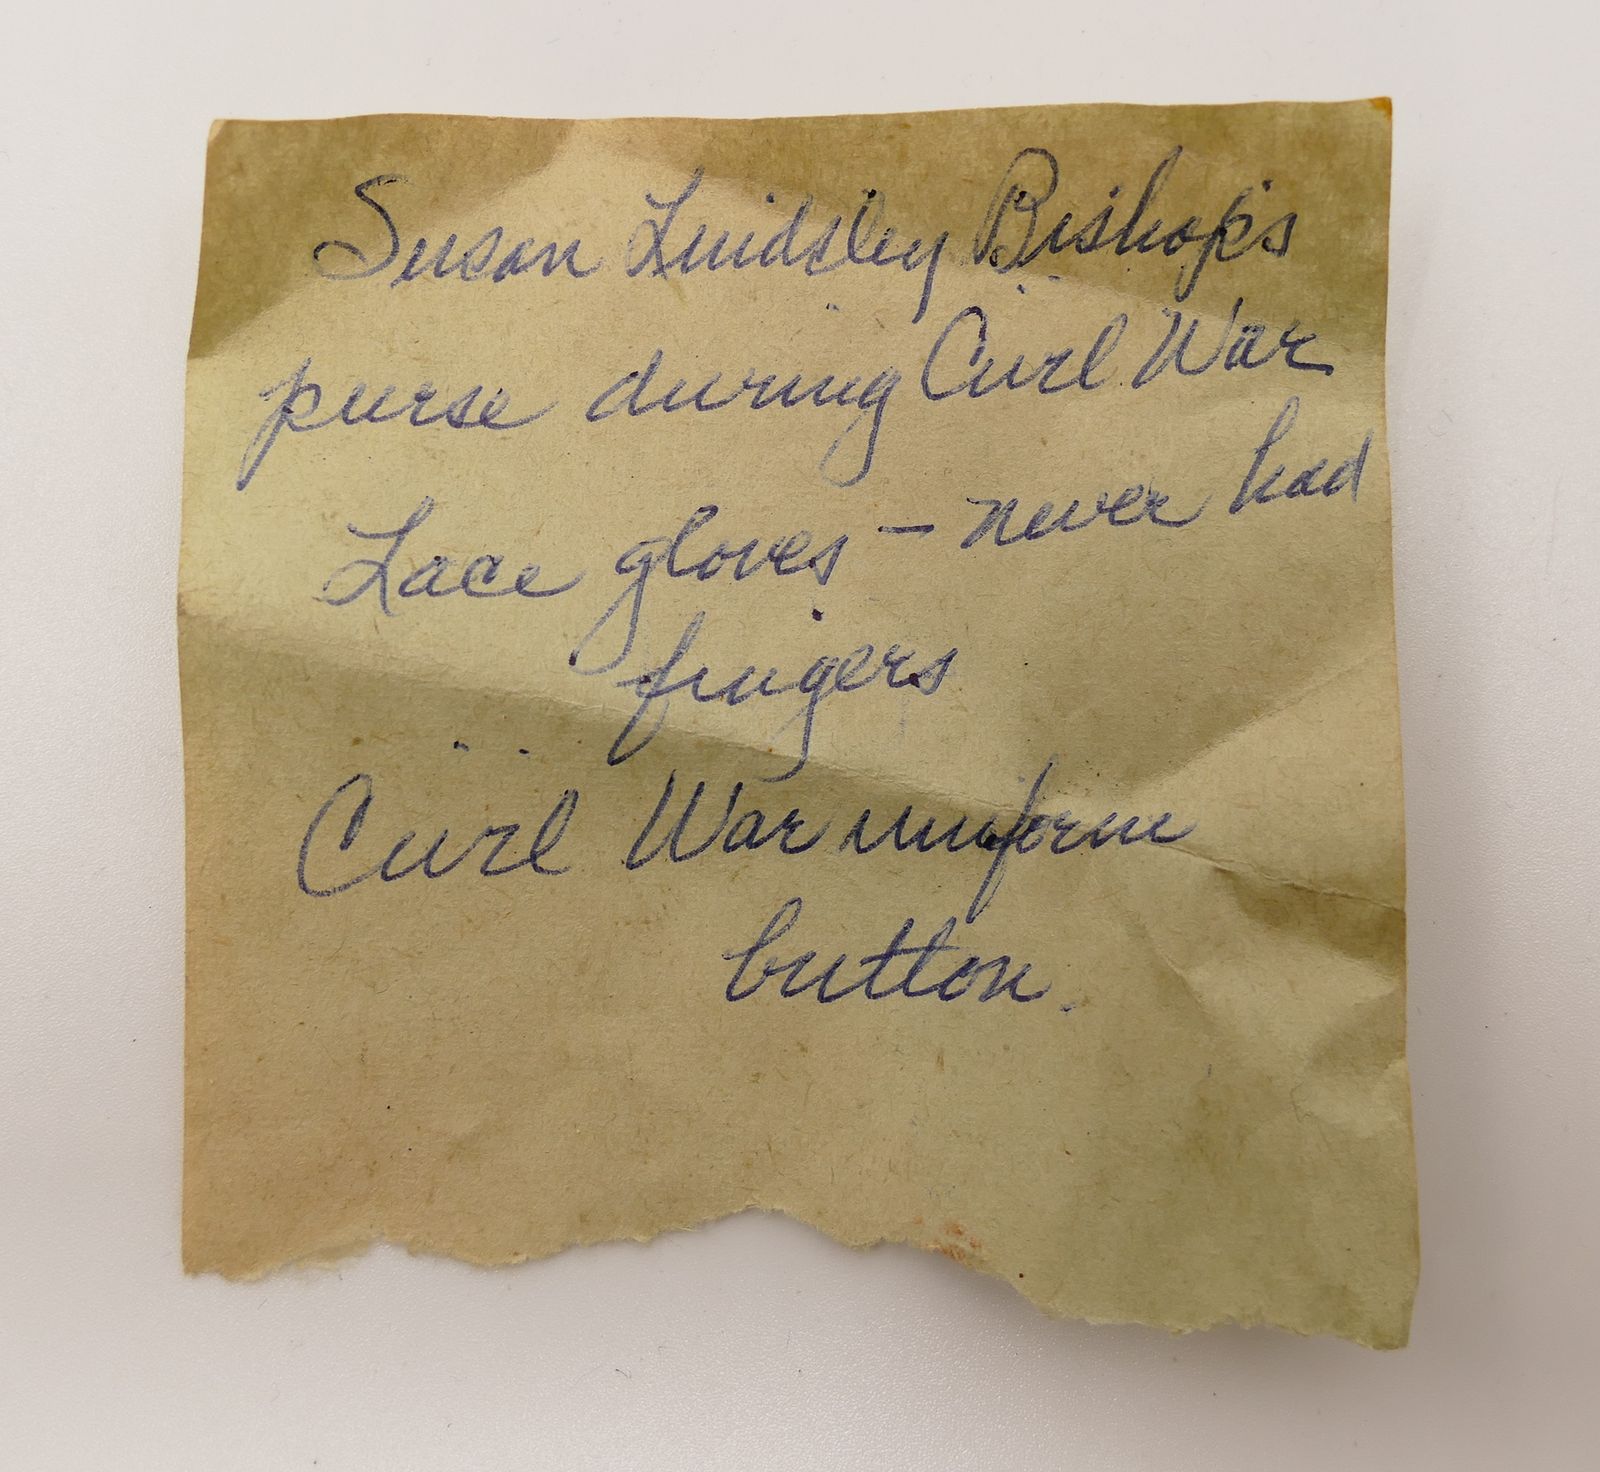 Susan Lindsley Bishop's
purse during Civil War
Lace gloves - never had
fingers
Civil War uniform
button.